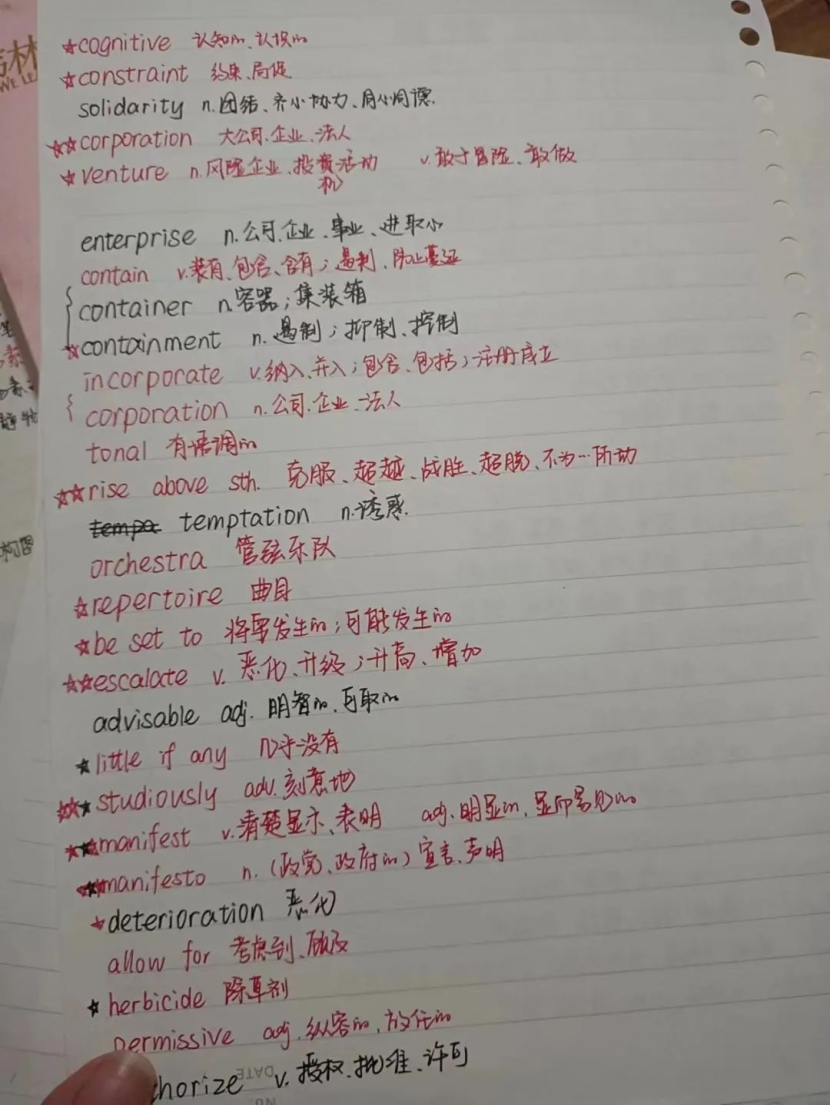 ☆cognitive 认知的、认识的
☆constraint 约束、局促
solidarity n.团结、齐心协力、同心同德
☆☆corporation 大公司、企业、法人
☆venture n.风险企业、投资活动 v.敢于冒险、敢做
机
enterprise n.公司、企业、事业、进取心
contain v.装有、包含、含有；遏制、防止蔓延
container n.容器；集装箱
☆containment n.遏制；抑制、控制
incorporate v.纳入、并入；包含、包括；注册成立
corporation n.公司、企业、法人
tonal 有语调的
☆☆rise above sth. 克服、超越、战胜、超脱、不为…所动
tempa temptation n.诱惑
orchestra 管弦乐队
☆repertoire 曲目
☆be set to 将要发生的；可能发生的
☆☆escalate v.恶化、升级；升高、增加
advisable adj.明智的、可取的
★little if any 几乎没有
☆☆★studiously adv.刻意地
★★☆manifest v.清楚显示、表明 adj.明显的，显而易见的
★★☆manifesto n.（政党、政府的）宣言、声明
★deterioration 恶化
allow for 考虑到、顾及
★herbicide 除草剂
permissive adj.纵容的，放任的
horize v.授权、批准、许可
DATE
NO.
WE LE
林
素
构图